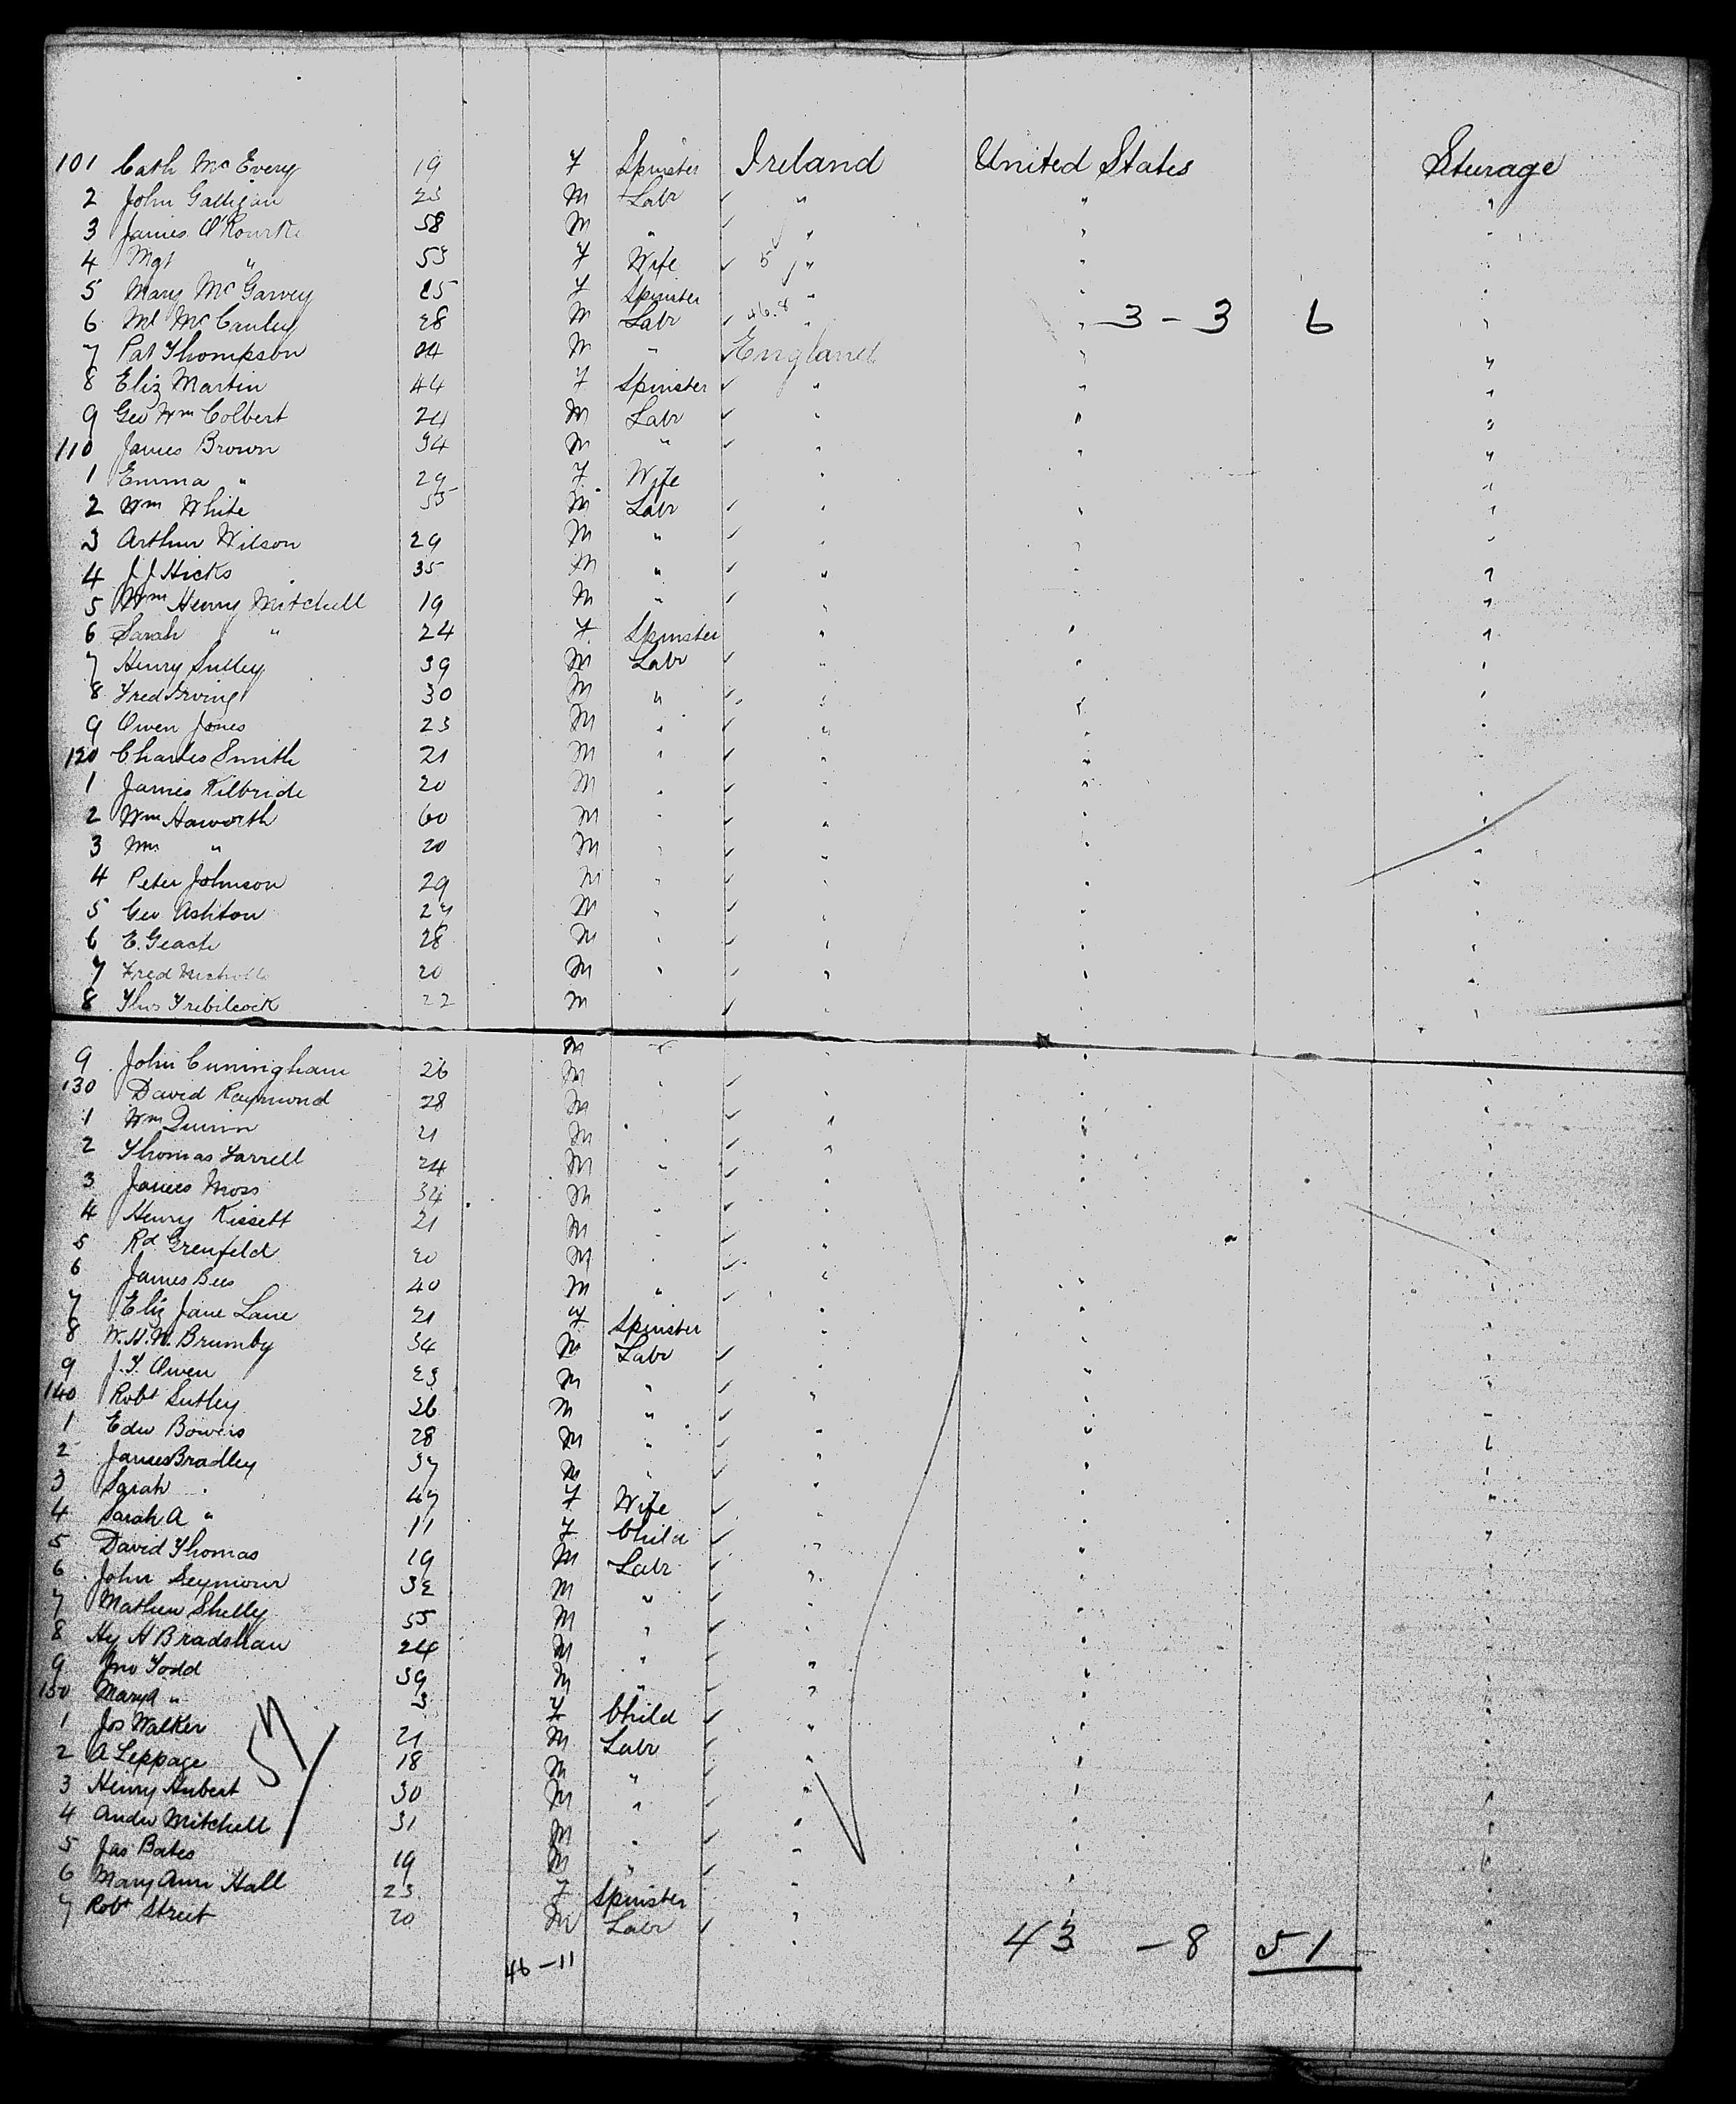 101 Cath McEvery 19 F Spinster Ireland United States Steurage
2 John Galligan 23 M Labr " " "
3 James O'Rourke 58 M " " "
4 Mgt " 53 F Wife 5 " "
5 Mary McGarvey 25 F Spinster " "
6 Ml McCauley 28 M Labr 46.8 " " 3 - 3 6 "
7 Pat Thompson 24 M " England " "
8 Eliz Martin 44 F Spinster " "
9 Geo Wm Colbert 24 M Labr " " "
110 James Brown 34 M " " " "
1 Emma " 29 F Wife " "
2 Wm White 55 M Labr " " "
3 Arthur Wilson 29 M " " " "
4 J J Hicks 35 M " " " "
5 Wm Henry Mitchell 19 M " " "
6 Sarah " 24 F Spinster " " "
7 Henry Sulley 39 M Labr " " "
8 Fred Irving 30 M " " " "
9 Owen Jones 23 M " " " "
120 Charles Smith 21 M " " " "
1 James Kilbride 20 M " " "
2 Wm Haworth 60 M " " " "
3 Wm " 20 M " " " "
4 Peter Johnson 29 M " " " "
5 Geo Ashton 27 M " " " "
6 E. Geach 28 M " " " "
7 Fred Nicholls 20 M " " " "
8 Thos Trebilcock 22 M " " "
9 John Cuningham 26 M " " " "
130 David Raymond 28 M " " "
1 Wm Quinn 21 M " " " "
2 Thomas Farrell 24 M " " " "
3 James Moss 34 M " " " "
4 Henry Kissett 21 M " " "
5 Rd Grenfeld 20 M " " " "
6 James Bees 40 M " " " "
7 Eliz Jane Lane 21 F Spinster " " "
8 W.H.W. Brumby 34 M Labr " "
9 J.T. Owen 23 M " " " "
140 Robt Sutley 26 M " " " "
1 Edw Bowers 28 M " " " "
2 James Bradley 37 M " " " "
3 Sarah " 47 F Wife " " "
4 Sarah A " 11 F Child " " "
5 David Thomas 19 M Labr " " "
6 John Seymour 32 M " " " "
7 Mathew Shelly 55 M " " " "
8 Hy H Bradshaw 24 M " " " "
9 Jno Todd 39 M " " " "
150 Mary A " 3 F Child " " "
1 Jos Walker 21 M Labr " " "
2 A Leppage 18 M " " " "
57
3 Henry Hubert 30 M " " " "
4 Andw Mitchell 31 M " " " "
5 Jas Bates 19 M " " " "
6 Mary Ann Hall 23 F Spinster " " "
7 Robt Street 20 M Labr " " "
43 - 8 51
46 - 11